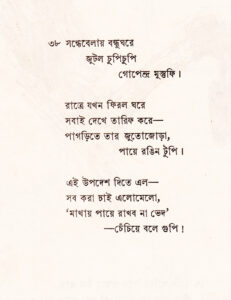 ৩৮ সন্ধেবেলায় বন্ধুঘরে
জুটল চুপিচুপি
গোপেন্দ্র মুস্তুফি।
রাত্রে যখন ফিরল ঘরে
সবাই দেখে তারিফ করে—
পাগড়িতে তার জুতোজোড়া,
পায়ে রঙিন টুপি।
এই উপদেশ দিতে এল—
সব করা চাই এলোমেলো,
‘মাথায় পায়ে রাখব না ভেদ’
—চেঁচিয়ে বলে গুপি।